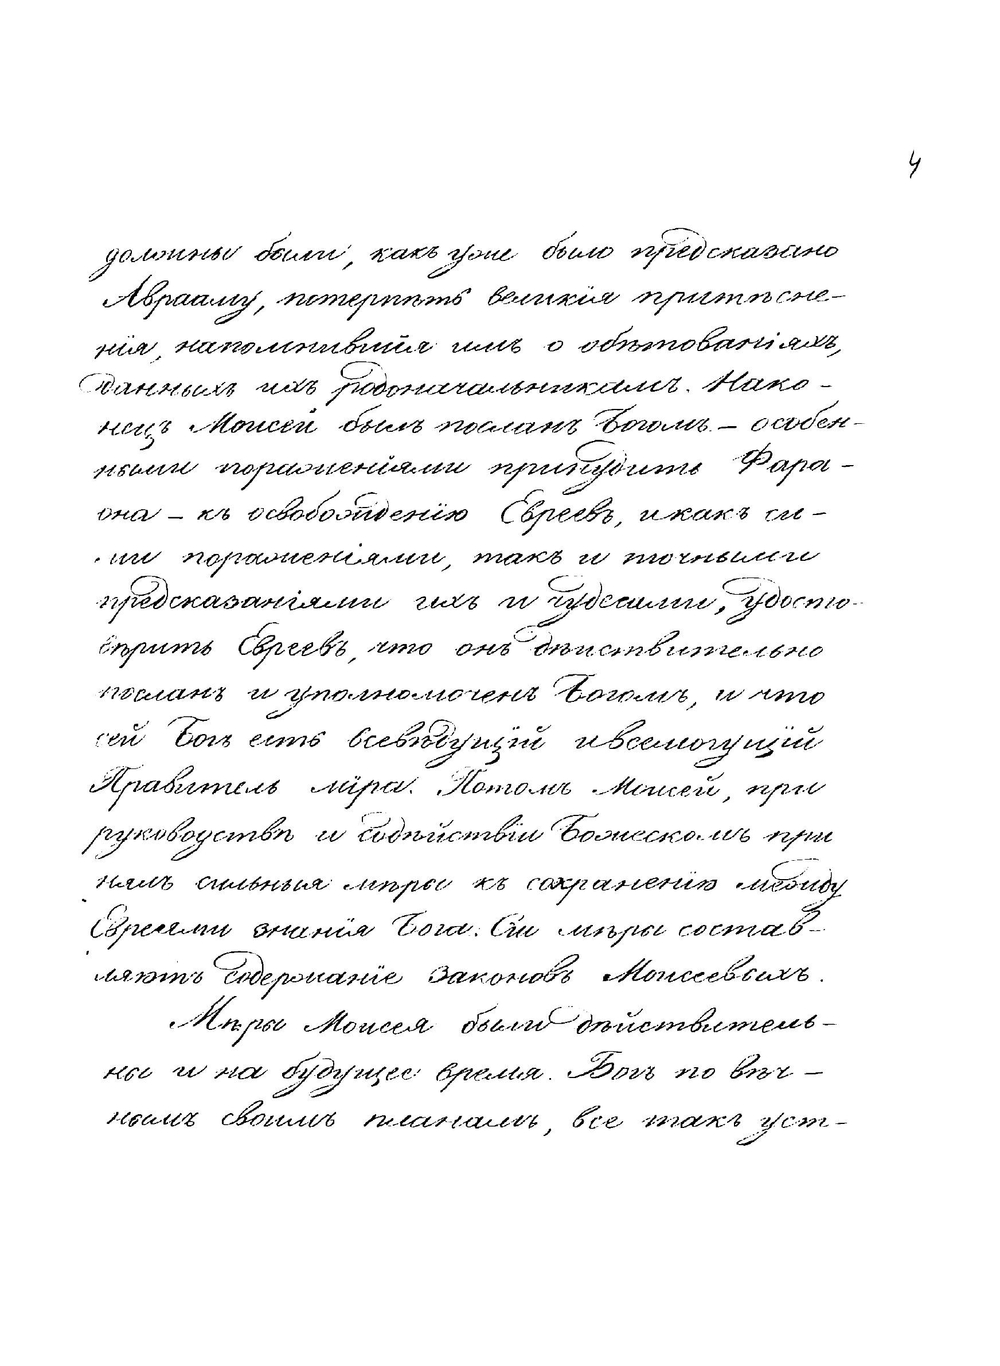 4
должны были, какъ уже было предсказано
Аврааму, потерпѣть великія притѣсне-
нія, напомнившія имъ о обѣтованіяхъ,
данныхъ ихъ родоначальникамъ. Нако-
нецъ Моисей былъ посланъ Богомъ – особен-
ными пораженіями принудить Фара-
она – къ освобожденію Евреевъ, и какъ си-
ми пораженіями, такъ и точными
предсказаніями ихъ и чудесами, удосто-
вѣрить Евреевъ, что онъ дѣйствительно
посланъ и уполномоченъ Богомъ, и что
сей Богъ есть всевѣдущій и всемогущій
Правитель міра. Потомъ Моисей, при
руководствѣ и содѣйствіи Божескомъ при
нялъ сильныя мѣры къ сохраненію между
Евреями знанія Бога. Сіи мѣры состав-
ляютъ содержаніе законовъ Моисеевыхъ.
Мѣры Моисея были дѣйствитель-
ны и на будущее время. Богъ по вѣч-
нымъ своимъ планамъ, все такъ уст-